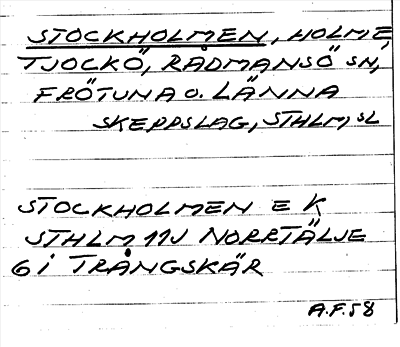 STOCKHOLMEN, HOLME,
TJOCKÖ, RÅDMANSÖ SN,
FRÖTUNA O. LÄNNA
SKEPPSLAG, STHLM, SL
STOCKHOLMEN E K
STHLM 11J NORRTÄLJE
6 i TRÅNGSKÄR
A.F.58